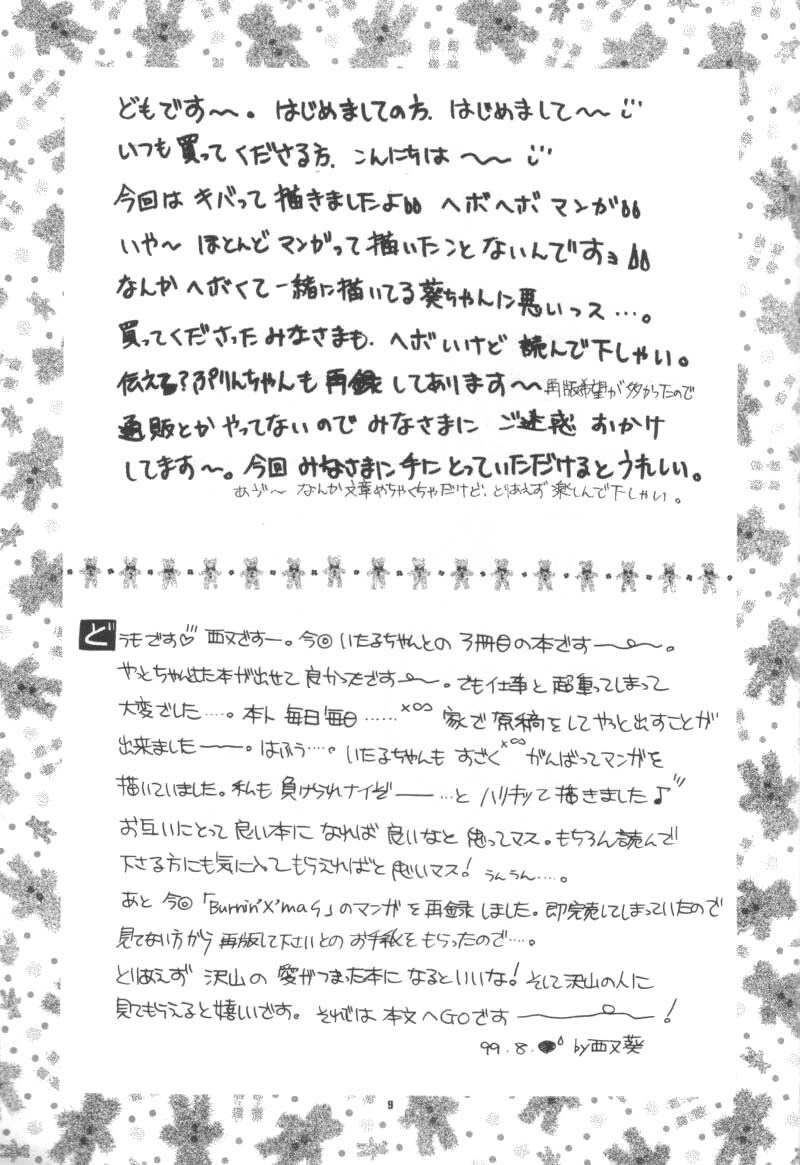 どもです〜。はじめましての方、はじめまして〜〜
いつも買ってくださる方、こんにちは〜〜
今回はキバって描きましたよ ヘボヘボマンガ
いや〜ほとんどマンガって描いたことないんですョ
なんかヘボくて一緒に描いてる葵ちゃんに悪いっス…。
買ってくださったみなさまも、ヘボいけど読んで下しゃい。
伝える?ぷりんちゃんも再録してあります〜再版希望が多かったので
通販とかやってないのでみなさまにご迷惑おかけ
してます〜。今回みなさまに手にとっていただけるとうれしい。
あぅ〜なんか文章めちゃくちゃだけど、とりあえず楽しんで下しゃい。
どうもです♡西又ですー。今回いたるちゃんとの3冊目の本です――。
やっとちゃんとした本が出せて良かったです――。でも仕事と超重ってしまって
大変でした….。本ト毎日毎日……×∞ 家で原稿をしてやっと出すことが
出来ました――。はふぅ…。いたるちゃんもすごく×∞がんばってマンガを
描いていました。私も負けられナイぞ――…とハリキッて描きました♪
お互いにとって良い本になれば良いなと思ってマス。もちろん読んで
下さる方にも気に入ってもらえればと思いマス!うんうん…。
あと今回「Burnin'X'mas」のマンガを再録しました。即完売してしまっていたので
見てない方から再版して下さいとのお手紙をもらったので…。
とりあえず沢山の愛がつまった本になるといいな!そして沢山の人に
見てもらえると嬉しいです。それでは本文へGOです――!
99.8. by西又葵
9